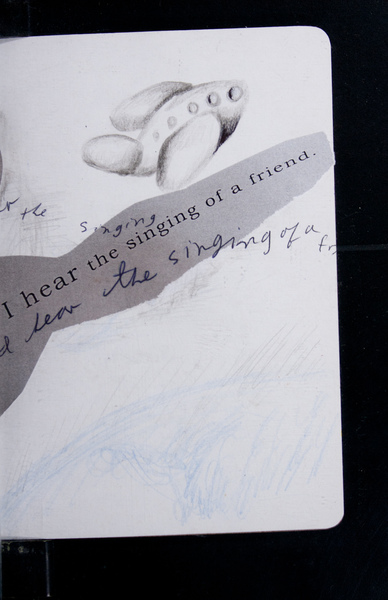 the
singing
I hear the singing of a friend.
hear the singing of a